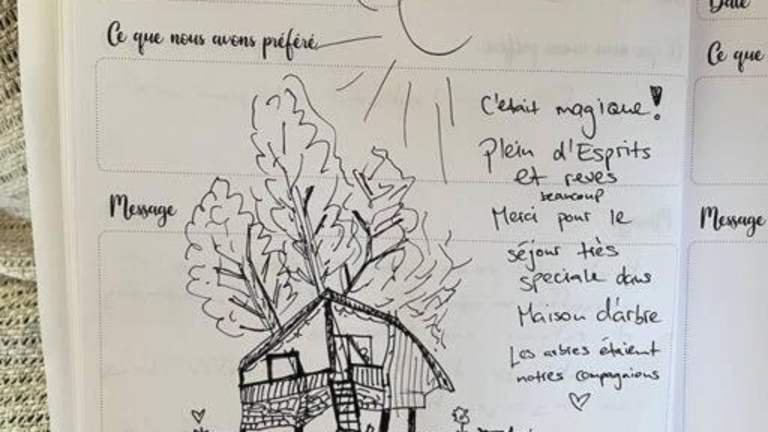 Date
Ce que nous avons préféré
Ce que
C'était magique!
Plein d'Esprits
et reves
beaucoup
Message
Message
Merci pour le
séjour très
speciale dans
Maison d'arbre
Les arbres étaient
notres compagnions